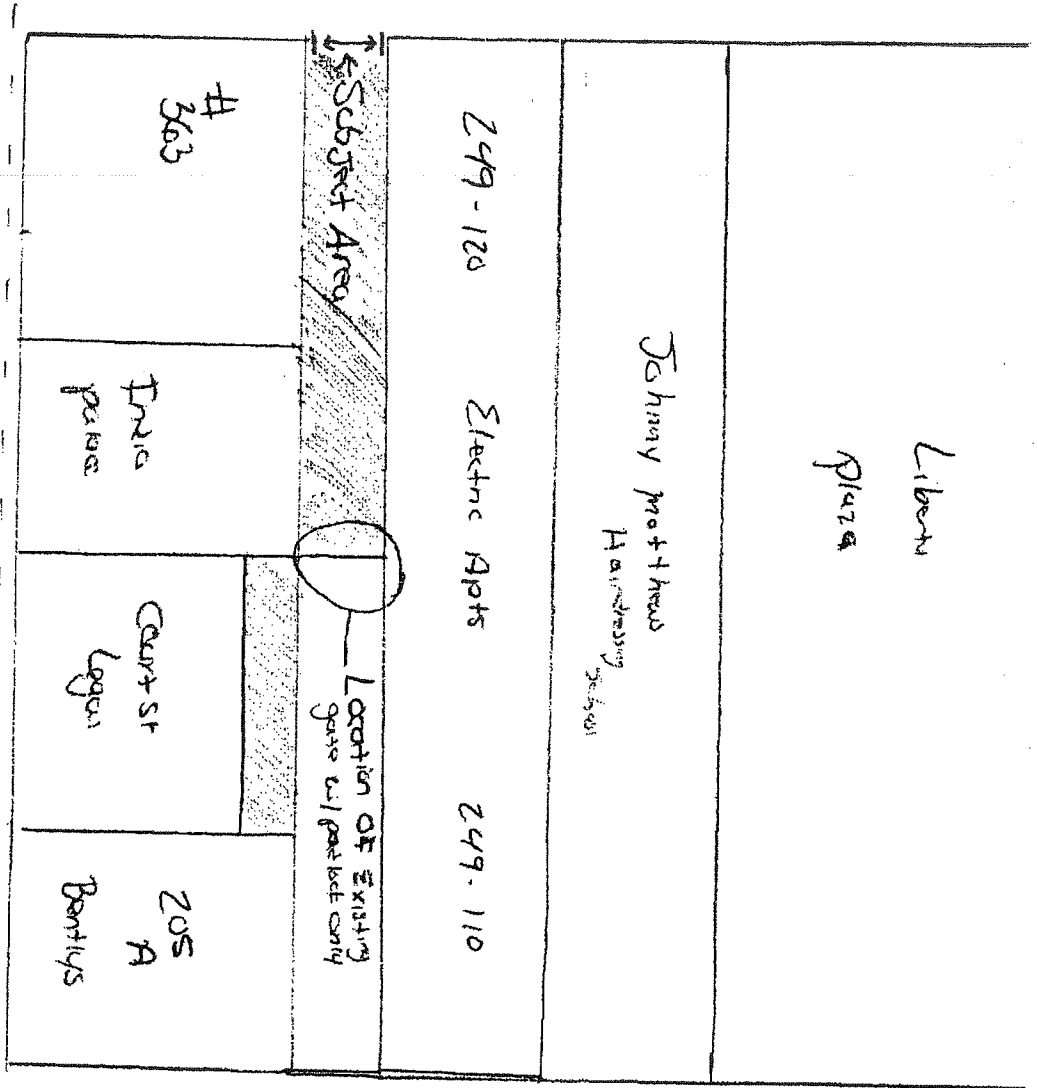 Liberty
Plaza
Johnny matthews
Hairdressing School
249-120
Electric Apts
249-110
Subject Area
Location of Existing
gate w/ padlock only
#
363
India
palace
Court St
205
A
Bentlys